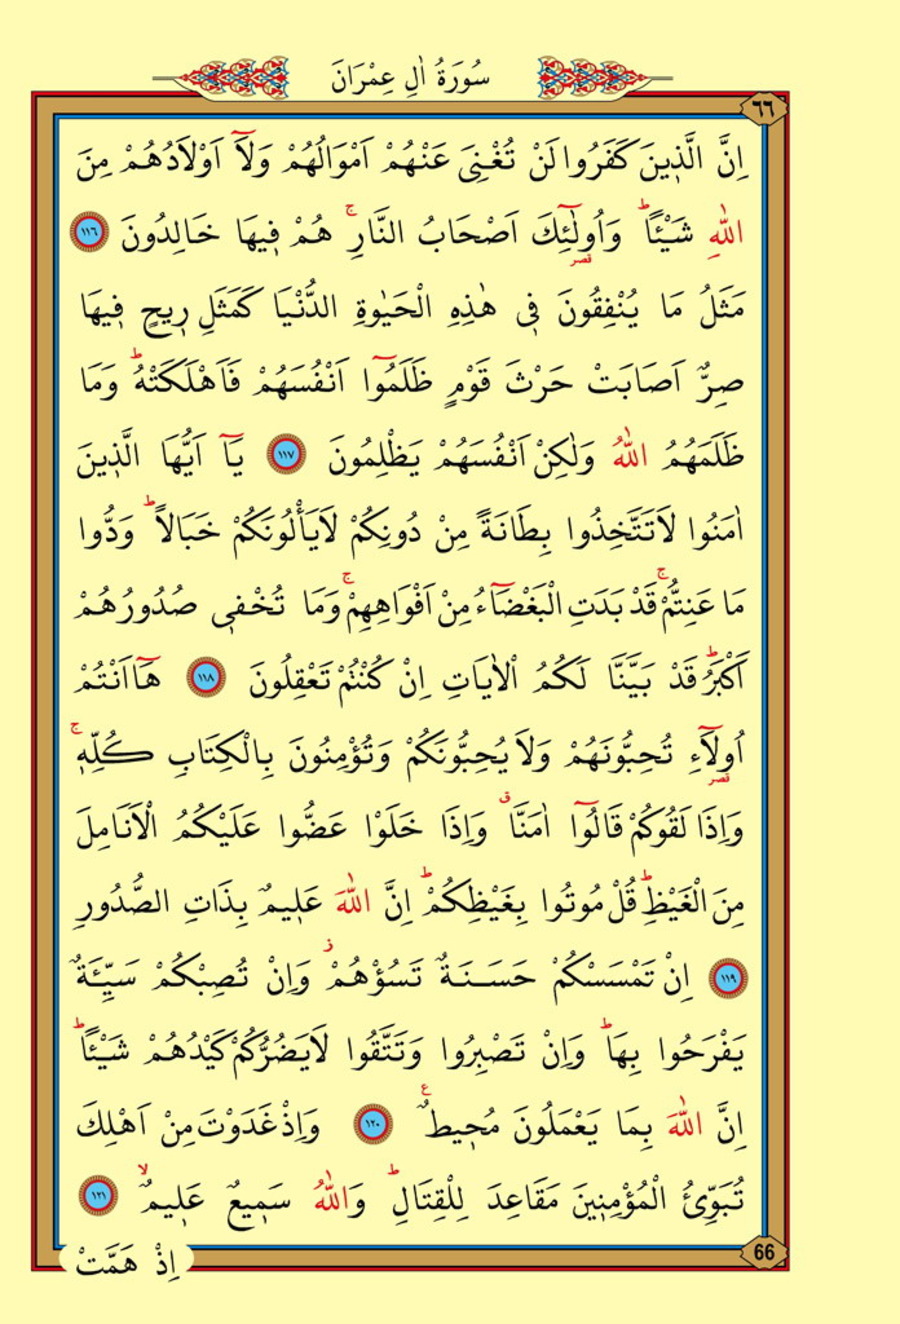 سُورَةُ اٰلِ عِمْرَانَ
٦٦
اِنَّ الَّذ۪ينَ كَفَرُوا لَنْ تُغْنِيَ عَنْهُمْ اَمْوَالُهُمْ وَلَٓا اَوْلَادُهُمْ مِنَ
اللّٰهِ شَيْـًٔاۜ وَاُو۬لٰٓئِكَ اَصْحَابُ النَّارِۚ هُمْ ف۪يهَا خَالِدُونَ ١١٦
قصر
مَثَلُ مَا يُنْفِقُونَ ف۪ي هٰذِهِ الْحَيٰوةِ الدُّنْيَا كَمَثَلِ ر۪يحٍ ف۪يهَا
صِرٌّ اَصَابَتْ حَرْثَ قَوْمٍ ظَلَمُٓوا اَنْفُسَهُمْ فَاَهْلَكَتْهُۜ وَمَا
ظَلَمَهُمُ اللّٰهُ وَلٰكِنْ اَنْفُسَهُمْ يَظْلِمُونَ ١١٧ يَٓا اَيُّهَا الَّذ۪ينَ
اٰمَنُوا لَا تَتَّخِذُوا بِطَانَةً مِنْ دُونِكُمْ لَا يَأْلُونَكُمْ خَبَالًاۜ وَدُّوا
مَا عَنِتُّمْۚ قَدْ بَدَتِ الْبَغْضَٓاءُ مِنْ اَفْوَاهِهِمْۚ وَمَا تُخْف۪ي صُدُورُهُمْ
اَكْبَرُۜ قَدْ بَيَّنَّا لَكُمُ الْاٰيَاتِ اِنْ كُنْتُمْ تَعْقِلُونَ ١١٨ هَٓا اَنْتُمْ
اُو۬لَٓاءِ تُحِبُّونَهُمْ وَلَا يُحِبُّونَكُمْ وَتُؤْمِنُونَ بِالْكِتَابِ كُلِّه۪ۚ
قصر
وَاِذَا لَقُوكُمْ قَالُٓوا اٰمَنَّاۗ وَاِذَا خَلَوْا عَضُّوا عَلَيْكُمُ الْاَنَامِلَ
مِنَ الْغَيْظِۜ قُلْ مُوتُوا بِغَيْظِكُمْۜ اِنَّ اللّٰهَ عَل۪يمٌ بِذَاتِ الصُّدُورِ
١١٩ اِنْ تَمْسَسْكُمْ حَسَنَةٌ تَسُؤْهُمْۘ وَاِنْ تُصِبْكُمْ سَيِّئَةٌ
يَفْرَحُوا بِهَاۜ وَاِنْ تَصْبِرُوا وَتَتَّقُوا لَا يَضُرُّكُمْ كَيْدُهُمْ شَيْـًٔاۜ
اِنَّ اللّٰهَ بِمَا يَعْمَلُونَ مُح۪يطٌ ع ١٢٠ وَاِذْ غَدَوْتَ مِنْ اَهْلِكَ
تُبَوِّئُ الْمُؤْمِن۪ينَ مَقَاعِدَ لِلْقِتَالِۜ وَاللّٰهُ سَم۪يعٌ عَل۪يمٌۙ ١٢١
66
اِذْ هَمَّتْ